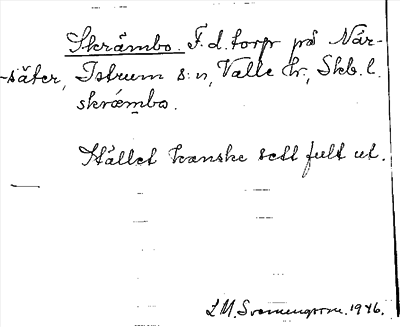 Skrämbo. F. d. torp på När-
-säter, Istrum s:n, Valle hr., Skb. l.
skræmbo.
Stället kanske sett fult ut.
L M. Svenungsson. 1946.